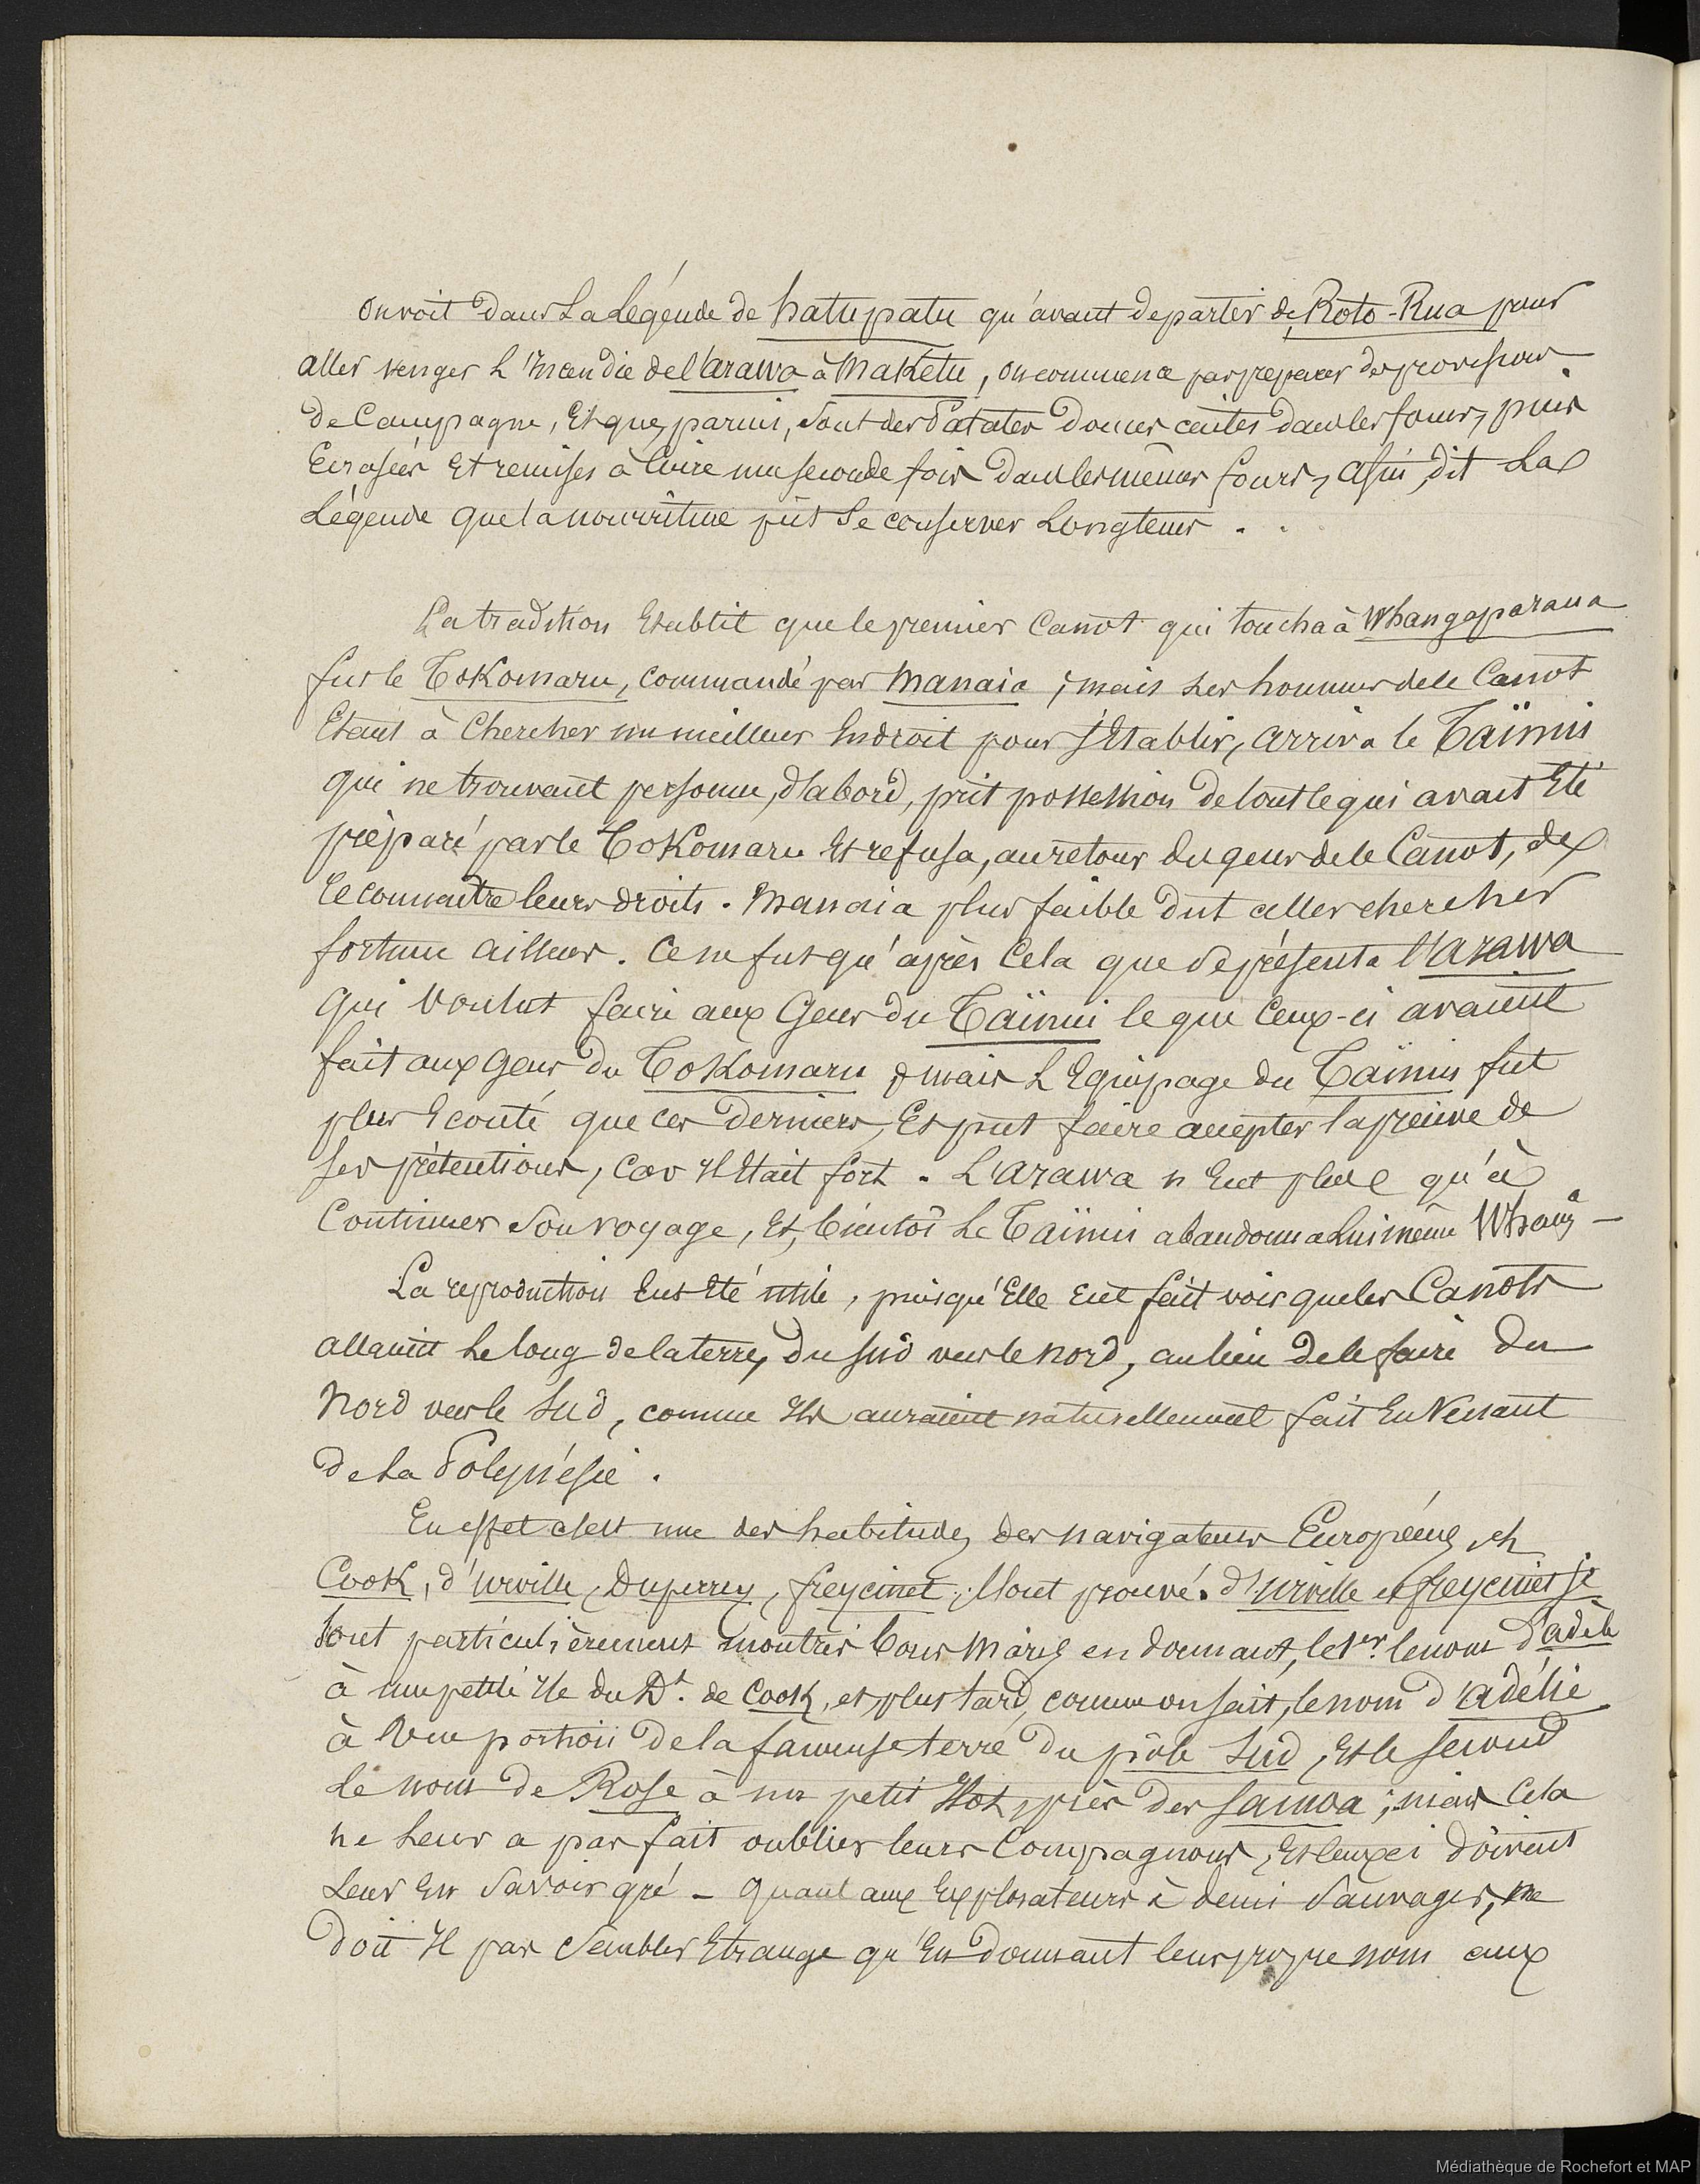 on voit dans La Légende de hatupatu qu'avant de partir de Roto-Rua pour
aller venger L'Incendie de l'arawa à Maketu, on commença par preparer des provisions
de Campagne, Et que, parmi, sont des Patates douces cuites dans les fours, puis
Ecrasées Et remises à Cuire une seconde fois dans les mêmes fours, afin, dit La
Légende que la nourriture pût Se conserver Longtems.
La tradition Etablit que le premier Canot qui toucha à Whangaparaua
fut le Tokomaru, commandé par Manaia ; mais Les hommes de ce Canot
Etant à Chercher un meilleur Endroit pour s'Etablir, arriva le Taïnui
qui ne trouvant personne, d'abord, prit possession de tout ce qui avait Eté
préparé par le Tokomaru Et refusa, au retour des gens de ce Canot, de
reconnaître leurs droits. Manaia plus faible dut aller chercher
fortune ailleurs. Ce ne fut qu'après Cela que se présenta l'arawa
qui Voulut faire aux Gens du Taïnui ce que Ceux-ci avaient
fait aux Gens du Tokomaru ; mais L'Equipage du Taïnui fut
plus Ecouté que ces derniers, Et put faire accepter la preuve de
ses prétentions, Car Il Etait fort. L'arawa n'Eut plus qu'à
Continuer Son voyage, Et, bientôt Le Taïnui abandonna Lui même Whang<sup>a</sup> —
La reproduction Eut Eté utile, puisqu'Elle Eut fait voir que les Canots
allaient Le long de la terre, du Sud vers le nord, au lieu de le faire du
Nord vers le Sud, comme Ils auraient naturellement fait En Venant
de La Polynésie.
En effet c'est une des habitudes des navigateurs Européens, et
Cook, d'urville, Duperrey, freycinet, l'ont prouvé. d'urville et freycinet se
sont particulièrement montrés bons Maris en donnant, le 1er. le nom d'adèle
à une petite Ile du Dt. de Cook, et plus tard, comme on sait, le nom d'adélie
à Une portion de la fameuse terre du pôle Sud, Et le second
Le nom de Rose à un petit Ilot, près des Samoa ; mais Cela
ne Leur a pas fait oublier leurs Compagnons, Et Ceux-ci doivent
Leur En Savoir gré — Quant aux Explorateurs à demi Sauvages, ne
doit Il pas Sembler Etrange qu'En donnant leur propre nom aux
Médiathèque de Rochefort et MAP